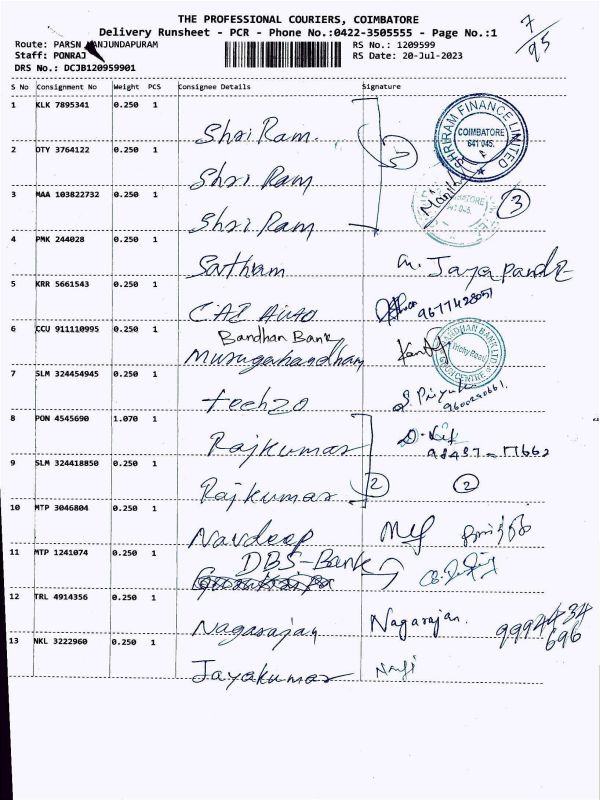 THE PROFESSIONAL COURIERS, COIMBATORE
Delivery Runsheet - PCR - Phone No.:0422-3505555 - Page No.:1
7/95
Route: PARSN NANJUNDAPURAM
RS No.: 1209599
Staff: PONRAJ
RS Date: 20-Jul-2023
DRS No.: DCJB120959901
S No Consignment No Weight PCS Consignee Details Signature
1 KLK 7895341 0.250 1 Shri Ram.
SHRIRAM FINANCE LIMITED COIMBATORE 641 045.
2 DTY 3764122 0.250 1 Shri Ram 3
3 MAA 103822732 0.250 1 Shri Ram 3
4 PMK 244028 0.250 1 Jaya
5 KRR 5661543 0.250 1
6 CCU 911110995 0.250 1 Bandhan Bank
Murugahandham
BANDHAN BANK LTD
7 SLM 324454945 0.250 1 techzo
8 PON 4545690 1.070 1 Rajkumar
9 SLM 324418850 0.250 1 Rajkumar 2 2
10 MTP 3046804 0.250 1 Navdeep
11 MTP 1241074 0.250 1 DBS-Bank
12 TRL 4914356 0.250 1 Nagarajan Nagarajan. 9994434
696
13 NKL 3222960 0.250 1 Jayakumar